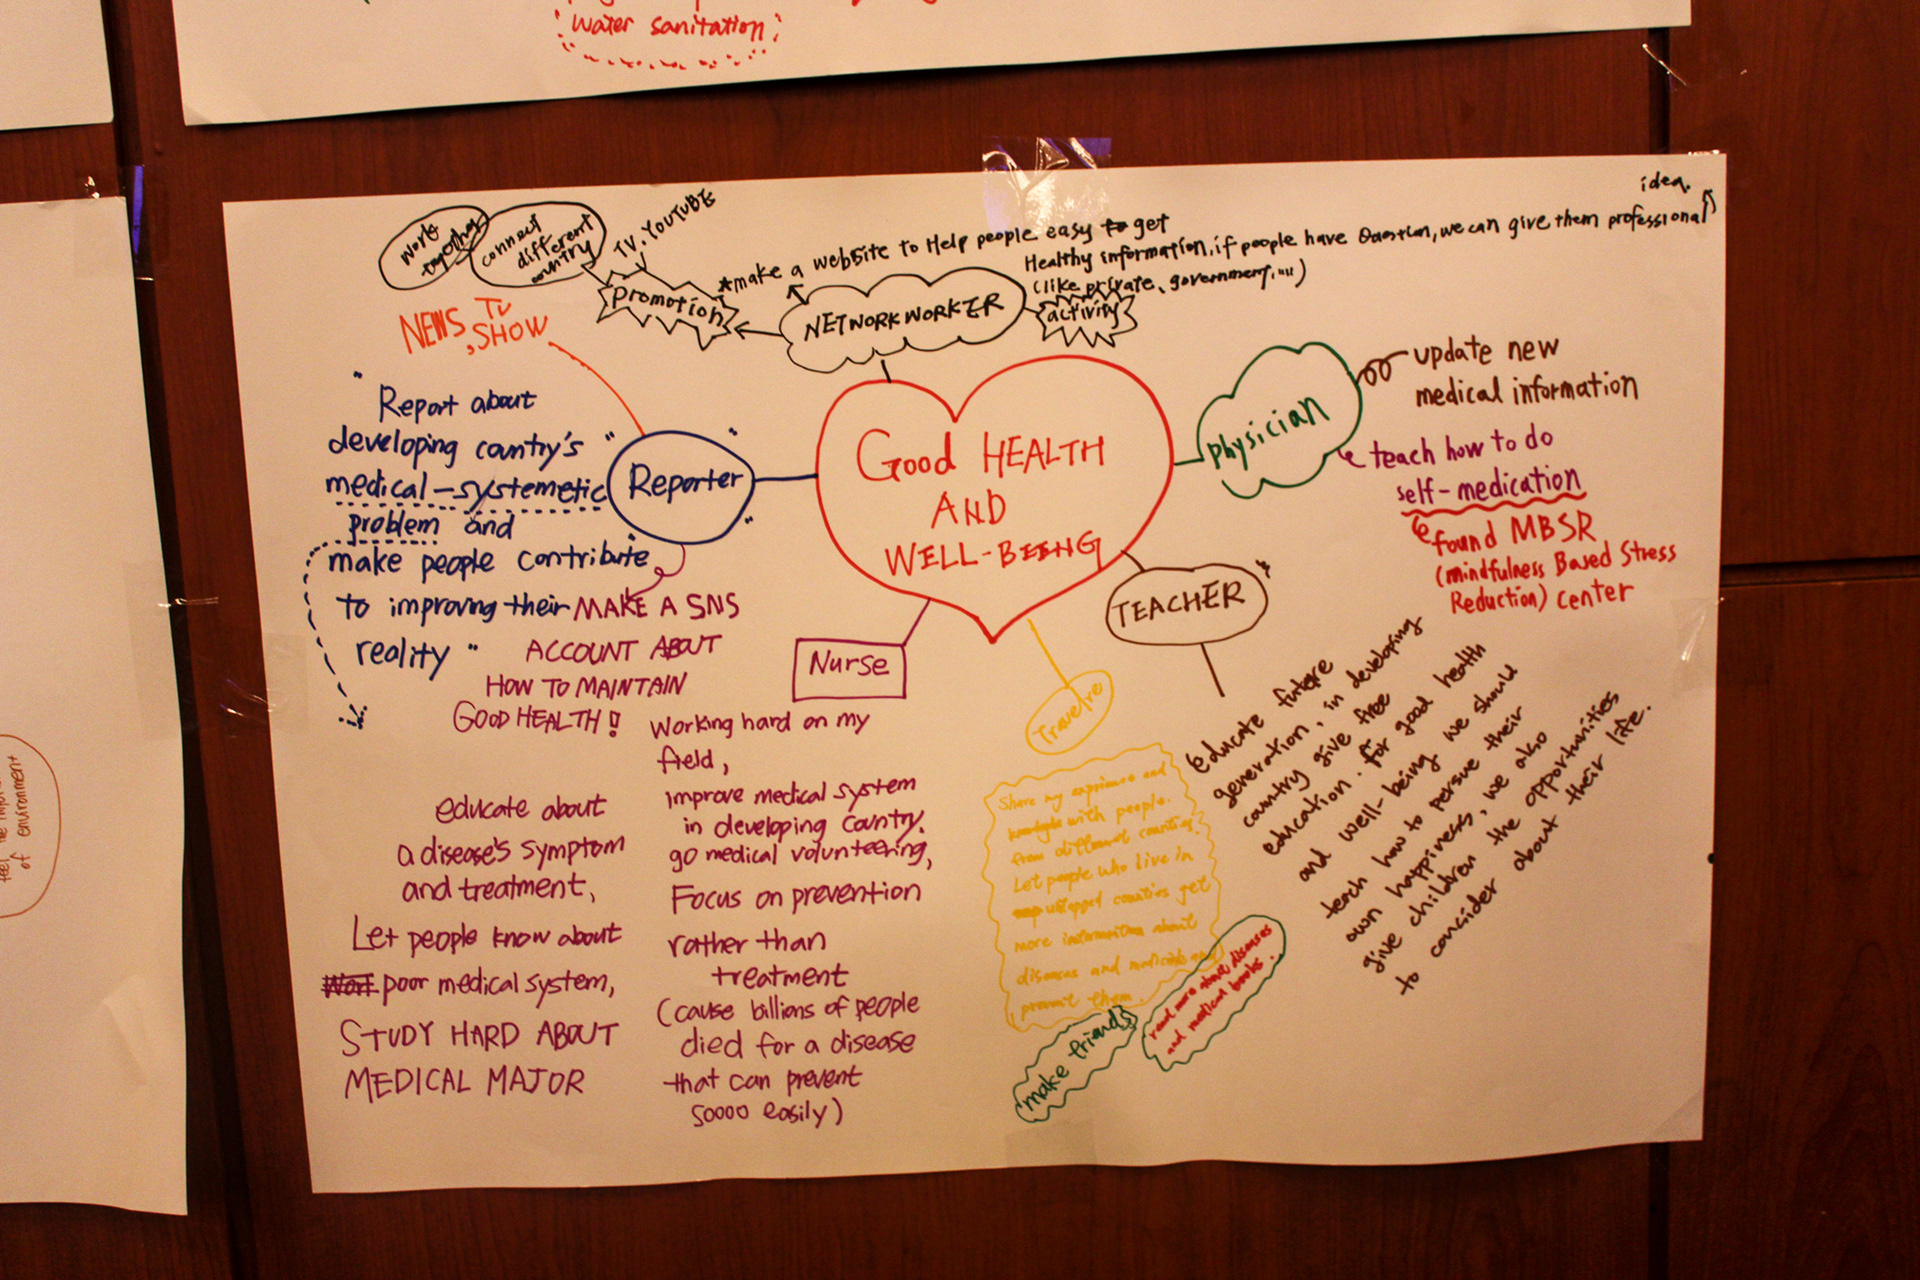 water sanitation
work
together
connect
different
country
TV, YOUTUBE
promotion
*make a website to Help people easy to get
Healthy information, if people have Question, we can give them professional
idea.
(like private, government, ...)
NETWORKWORKER
activity
NEWS, TV
SHOW
"Report about
developing country's
medical-systemetic
problem and
make people contribute
to improving their
reality"
"Reporter"
MAKE A SNS
ACCOUNT ABOUT
HOW TO MAINTAIN
GOOD HEALTH!
Good HEALTH
AND
WELL-BEING
physician
update new
medical information
teach how to do
self-medication
found MBSR
(mindfulness Based Stress
Reduction) center
TEACHER
Educate future
generation, in developing
country give free
education. For good health
and well-being we should
teach how to persue their
own happiness, we also
give children the opportunities
to concider about their life.
Nurse
Working hard on my
field,
improve medical system
in developing country.
go medical volunteering,
Focus on prevention
rather than
treatment
(cause billions of people
died for a disease
that can prevent
soooo easily)
educate about
a disease's symptom
and treatment,
Let people know about
poor medical system,
STUDY HARD ABOUT
MEDICAL MAJOR
Share my and
with people.
from different
Let people who live in
get
more information about
diseases and
them.
make friends
read more about diseases
and medical books.
of environment